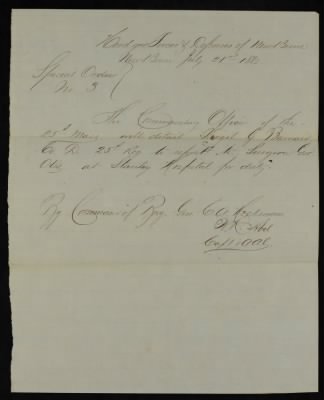 Head qrs Forces & Defences of New Berne
New Berne July 21st 186
Special Order
No 3
The Commanding Officer of the
25th Mass will detail
Co D. 25th Reg to report to Surgeon Geo
Otis at Stanley Hospital for duty.
By Command of Brig. Gen C A Heckman
Capt & AAG